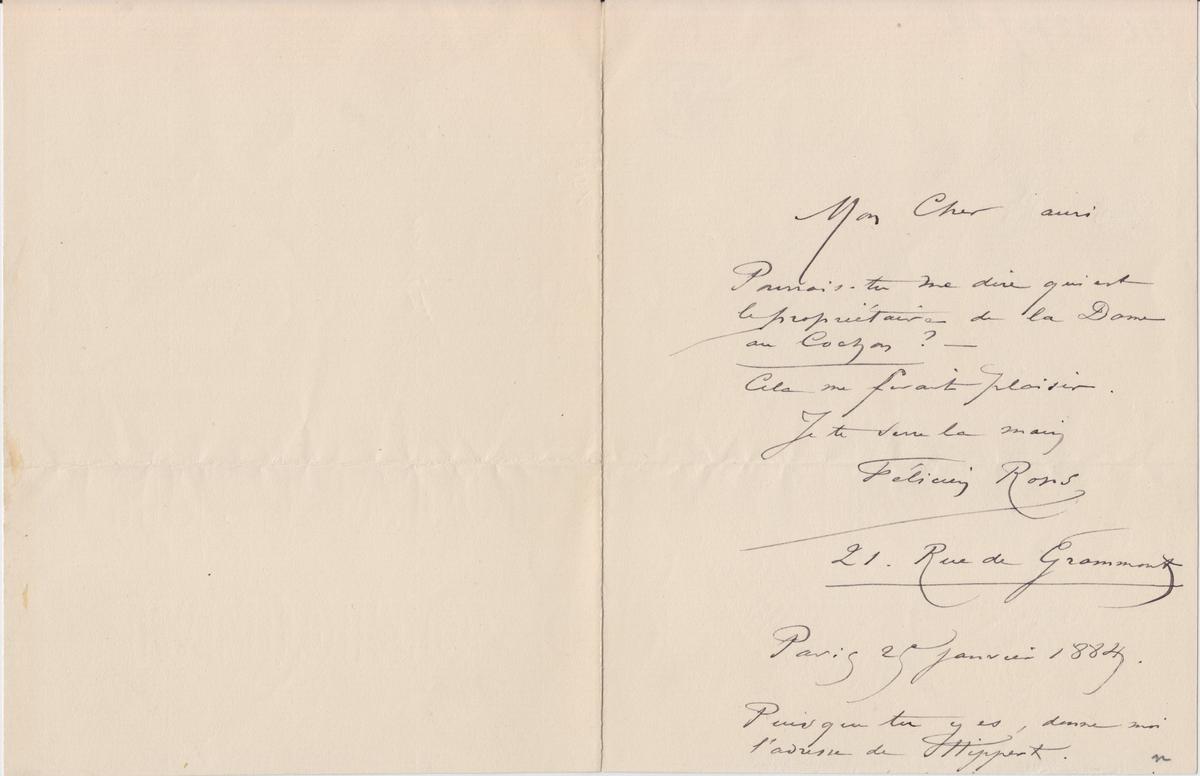 Mon Cher ami
Pourrais-tu me dire qui est
le propriétaire de la Dame
au Cochon ? —
Cela me ferait plaisir.
Je te serre la main
Félicien Rops
21. Rue de Grammont
Paris 25 Janvier 1884.
Puisque tu y es, donne moi
l'adresse de